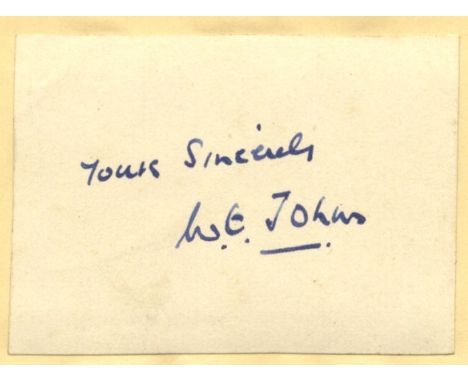 Yours Sincerely
W.E. Johns